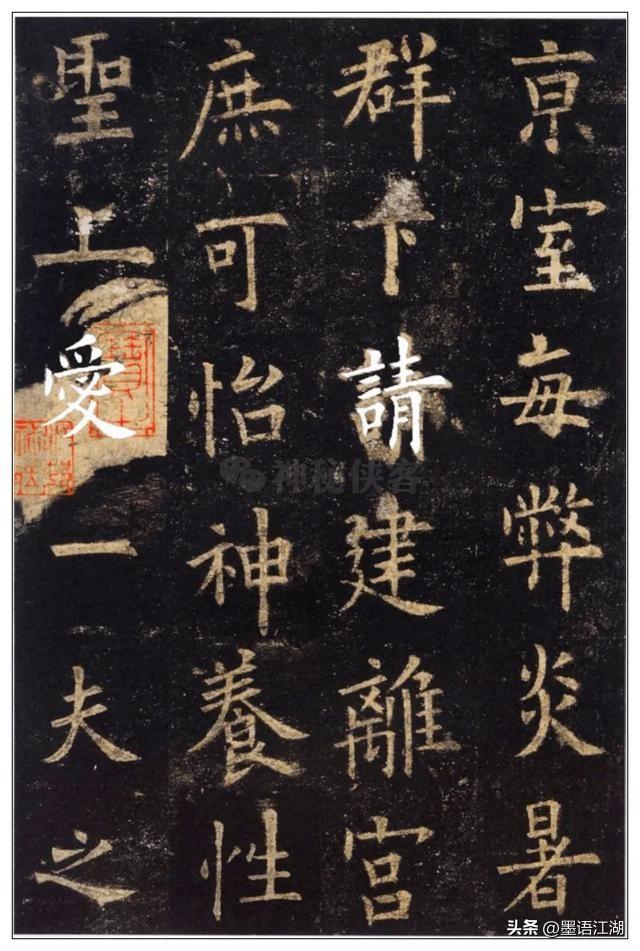 京室每弊炎暑
群下請建離宮
庶可怡神養性
聖上愛一夫之
神秘侠客
头条 @墨语江湖